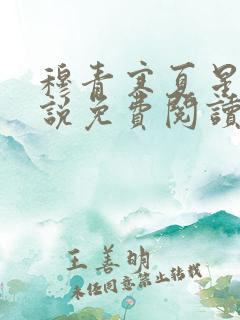 穆青寒夏星
說免費閱讀
王善明
未经同意禁止转载